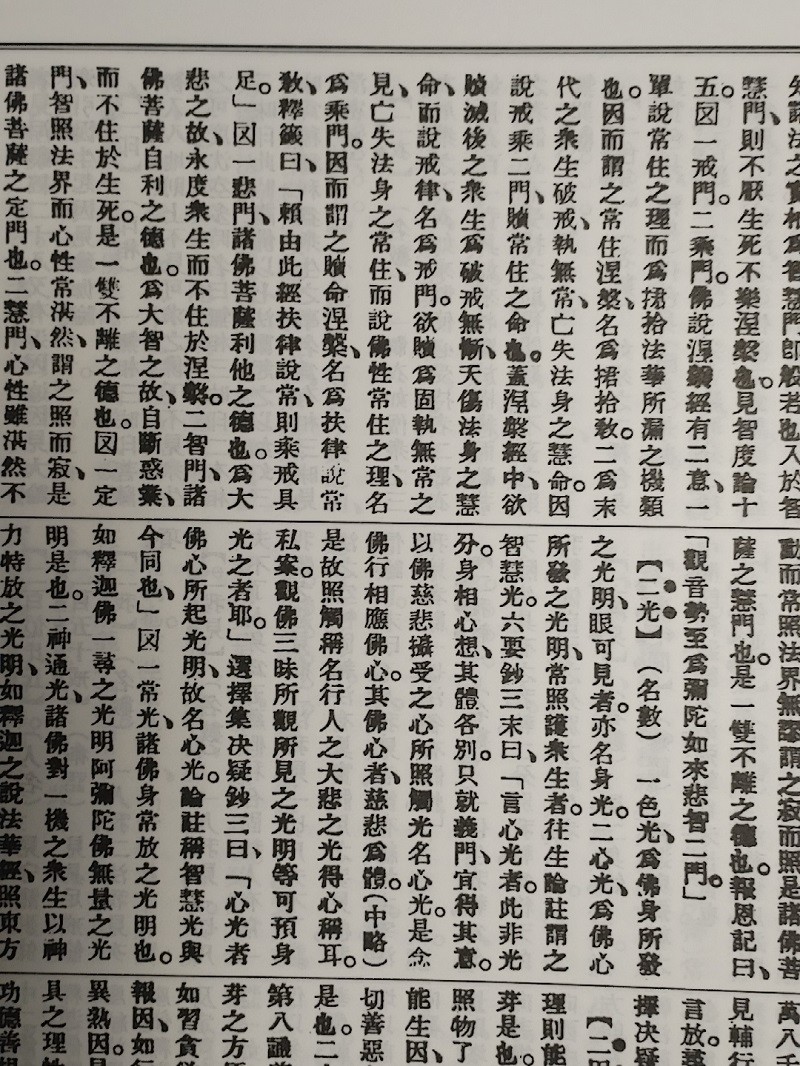 慧門、則不厭生死不樂涅槃也。見智度論十
五。図一戒門。二乘門。佛說涅槃經有二意、一
單說常住之理而爲捃拾法華所漏之機類
也。因而謂之常住涅槃、名爲捃拾敎。二爲末
代之衆生破戒、執無常、亡失法身之慧命。因
說戒乘二門、贖常住之命也。蓋涅槃經中、欲
贖滅後之衆生爲破戒無慚、夭傷法身之慧
命、而說戒律、名爲戒門。欲贖爲固執無常之
見、亡失法身之常住、而說佛性常住之理、名
爲乘門。因而謂之贖命涅槃、名爲扶律說常
敎、釋籤曰、「賴由此經扶律說常、則乘戒具
足。」図一悲門、諸佛菩薩利他之德也。爲大
悲之故、永度衆生而不住於涅槃。二智門、諸
佛菩薩自利之德也。爲大智之故、自斷惑業、
而不住於生死。是一雙不離之德也。図一定
門、智照法界而心性常湛然、謂之照而寂、是
諸佛菩薩之定門也。二慧門、心性雖湛然不
動而常照法界無謬謂之寂而照是諸佛菩
薩之慧門也。是一雙不離之德也。報恩記曰、
「觀音勢至爲彌陀如來悲智二門。」
【二光】（名數）　一色光、爲佛身所發
之光明、眼可見者。亦名身光。二心光、爲佛心
所發之光明、常照護衆生者。往生論註謂之
智慧光。六要鈔三末曰、「言心光者。此非光
分。身相心想、其體各別。只就義門、宜得其意。
以佛慈悲攝受之心所照觸光名心光。是念
佛行相應佛心。其佛心者、慈悲爲體。（中略）
是故照觸稱名行人之大悲之光得心稱耳。
私案。觀佛三昧所觀所見之光明等可預身
光之者耶。」選擇集決疑鈔三曰、「心光者
佛心所起光明、故名心光。論註稱智慧光與
今同也、」図一常光、諸佛身常放之光明也。
如釋迦佛一尋之光明阿彌陀佛無量之光
明是也。二神通光、諸佛對一機之衆生以神
力特放之光明、如釋迦之說法華經、照東方
萬八千
見輔行
言放。
擇決疑
【二
理則能
芽是也。
照物了
能生因、
切善惡
是也。二
第八識
芽之方
如習貪
報因、如
異熟因。
具之理
功德善